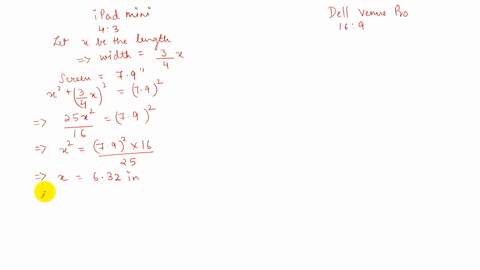 iPad mini
4:3
Let x be the length
=> width = 3/4 x
Screen = 7.9"
x² + (3/4 x)² = (7.9)²
=> 25x²/16 = (7.9)²
=> x² = (7.9)² × 16/25
=> x = 6.32 in
Dell Venue Pro
16:9